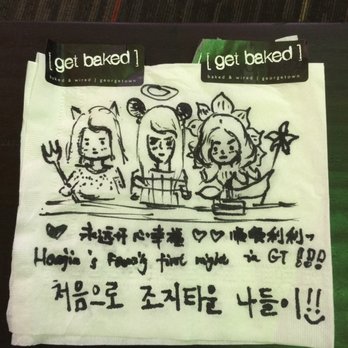 [ get baked ]
baked & wired | georgetown
[ get baked ]
baked & wired | georgetown
♥ 永远开心幸福 ♡♡ 顺顺利利~
Haejin's Fam's first night in GT !!!
처음으로 조지타운 나들이!!